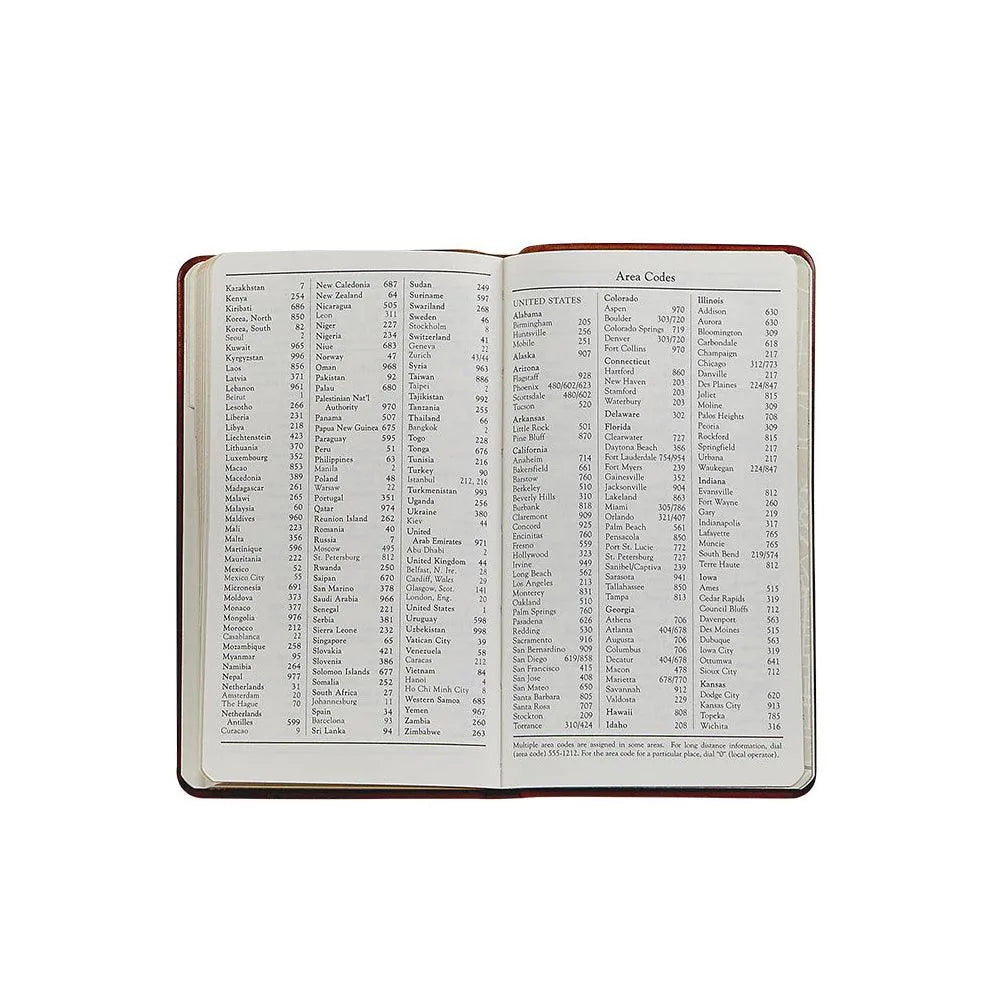 Kazakhstan 7
Kenya 254
Kiribati 686
Korea, North 850
Korea, South 82
Seoul 2
Kuwait 965
Kyrgyzstan 996
Laos 856
Latvia 371
Lebanon 961
Beirut 1
Lesotho 266
Liberia 231
Libya 218
Liechtenstein 423
Lithuania 370
Luxembourg 352
Macao 853
Macedonia 389
Madagascar 261
Malawi 265
Malaysia 60
Maldives 960
Mali 223
Malta 356
Martinique 596
Mauritania 222
Mexico 52
Mexico City 55
Micronesia 691
Moldova 373
Monaco 377
Mongolia 976
Morocco 212
Casablanca 22
Mozambique 258
Myanmar 95
Namibia 264
Nepal 977
Netherlands 31
Amsterdam 20
The Hague 70
Netherlands
Antilles 599
Curacao 9
New Caledonia 687
New Zealand 64
Nicaragua 505
Leon 311
Niger 227
Nigeria 234
Niue 683
Norway 47
Oman 968
Pakistan 92
Palau 680
Palestinian Nat'l
Authority 970
Panama 507
Papua New Guinea 675
Paraguay 595
Peru 51
Philippines 63
Manila 2
Poland 48
Warsaw 22
Portugal 351
Qatar 974
Reunion Island 262
Romania 40
Russia 7
Moscow 495
St. Petersburg 812
Rwanda 250
Saipan 670
San Marino 378
Saudi Arabia 966
Senegal 221
Serbia 381
Sierra Leone 232
Singapore 65
Slovakia 421
Slovenia 386
Solomon Islands 677
Somalia 252
South Africa 27
Johannesburg 11
Spain 34
Barcelona 93
Sri Lanka 94
Sudan 249
Suriname 597
Swaziland 268
Sweden 46
Stockholm 8
Switzerland 41
Geneva 22
Zurich 43/44
Syria 963
Taiwan 886
Taipei 2
Tajikistan 992
Tanzania 255
Thailand 66
Bangkok 2
Togo 228
Tonga 676
Tunisia 216
Turkey 90
Istanbul 212, 216
Turkmenistan 993
Uganda 256
Ukraine 380
Kiev 44
United
Arab Emirates 971
Abu Dhabi 2
United Kingdom 44
Belfast, N. Ire. 28
Cardiff, Wales 29
Glasgow, Scot. 141
London, Eng. 20
United States 1
Uruguay 598
Uzbekistan 998
Vatican City 39
Venezuela 58
Caracas 212
Vietnam 84
Hanoi 4
Ho Chi Minh City 8
Western Samoa 685
Yemen 967
Zambia 260
Zimbabwe 263
Area Codes
UNITED STATES
Alabama
Birmingham 205
Huntsville 256
Mobile 251
Alaska 907
Arizona
Flagstaff 928
Phoenix 480/602/623
Scottsdale 480/602
Tucson 520
Arkansas
Little Rock 501
Pine Bluff 870
California
Anaheim 714
Bakersfield 661
Barstow 760
Berkeley 510
Beverly Hills 310
Burbank 818
Claremont 909
Concord 925
Encinitas 760
Fresno 559
Hollywood 323
Irvine 949
Long Beach 562
Los Angeles 213
Monterey 831
Oakland 510
Palm Springs 760
Pasadena 626
Redding 530
Sacramento 916
San Bernardino 909
San Diego 619/858
San Francisco 415
San Jose 408
San Mateo 650
Santa Barbara 805
Santa Rosa 707
Stockton 209
Torrance 310/424
Colorado
Aspen 970
Boulder 303/720
Colorado Springs 719
Denver 303/720
Fort Collins 970
Connecticut
Hartford 860
New Haven 203
Stamford 203
Waterbury 203
Delaware 302
Florida
Clearwater 727
Daytona Beach 386
Fort Lauderdale 754/954
Fort Myers 239
Gainesville 352
Jacksonville 904
Lakeland 863
Miami 305/786
Orlando 321/407
Palm Beach 561
Pensacola 850
Port St. Lucie 772
St. Petersburg 727
Sanibel/Captiva 239
Sarasota 941
Tallahassee 850
Tampa 813
Georgia
Athens 706
Atlanta 404/678
Augusta 706
Columbus 706
Decatur 404/678
Macon 478
Marietta 678/770
Savannah 912
Valdosta 229
Hawaii 808
Idaho 208
Illinois
Addison 630
Aurora 630
Bloomington 309
Carbondale 618
Champaign 217
Chicago 312/773
Danville 217
Des Plaines 224/847
Joliet 815
Moline 309
Palos Heights 708
Peoria 309
Rockford 815
Springfield 217
Urbana 217
Waukegan 224/847
Indiana
Evansville 812
Fort Wayne 260
Gary 219
Indianapolis 317
Lafayette 765
Muncie 765
South Bend 219/574
Terre Haute 812
Iowa
Ames 515
Cedar Rapids 319
Council Bluffs 712
Davenport 563
Des Moines 515
Dubuque 563
Iowa City 319
Ottumwa 641
Sioux City 712
Kansas
Dodge City 620
Kansas City 913
Topeka 785
Wichita 316
Multiple area codes are assigned in some areas. For long distance information, dial
(area code) 555-1212. For the area code for a particular place, dial "0" (local operator).